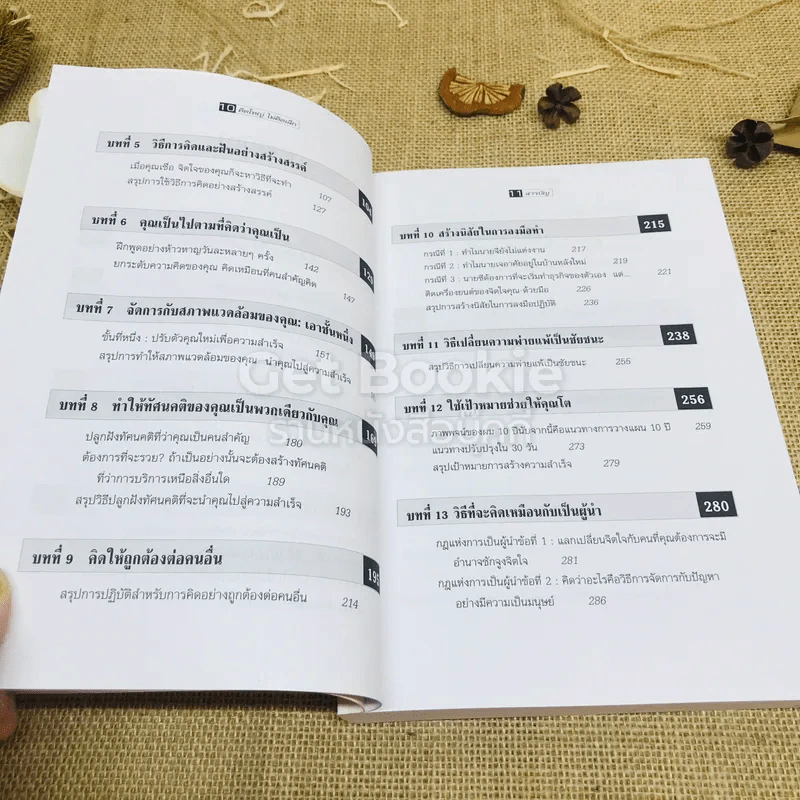 10 คิดใหญ่ ไม่คิดเล็ก
บทที่ 5 วิธีการคิดและฝันอย่างสร้างสรรค์
เมื่อคุณเชื่อ จิตใจของคุณก็จะหาวิธีที่จะทำ 107
สรุปการใช้วิธีการคิดอย่างสร้างสรรค์ 127
บทที่ 6 คุณเป็นไปตามที่คิดว่าคุณเป็น
ฝึกพูดอย่างห้าวหาญวันละหลายๆ ครั้ง 142
ยกระดับความคิดของคุณ คิดเหมือนที่คนสำคัญคิด 147
บทที่ 7 จัดการกับสภาพแวดล้อมของคุณ: เอาชั้นหนึ่ง
ขั้นที่หนึ่ง : ปรับตัวคุณใหม่เพื่อความสำเร็จ 151
สรุปการทำให้สภาพแวดล้อมของคุณ นำคุณไปสู่ความสำเร็จ
บทที่ 8 ทำให้ทัศนคติของคุณเป็นพวกเดียวกับคุณ
ปลูกฝังทัศนคติที่ว่าคุณเป็นคนสำคัญ 180
ต้องการที่จะรวย? ถ้าเป็นอย่างนั้นจะต้องสร้างทัศนคติ
ที่ว่าการบริการเหนือสิ่งอื่นใด 189
สรุปวิธีปลูกฝังทัศนคติที่จะนำคุณไปสู่ความสำเร็จ 193
บทที่ 9 คิดให้ถูกต้องต่อคนอื่น 195
สรุปการปฏิบัติสำหรับการคิดอย่างถูกต้องต่อคนอื่น 214
11 สารบัญ
บทที่ 10 สร้างนิสัยในการลงมือทำ 215
กรณีที่ 1 : ทำไมนายจียังไม่แต่งงาน 217
กรณีที่ 2 : ทำไมนายเจอาศัยอยู่ในบ้านหลังใหม่ 219
กรณีที่ 3 : นายซีต้องการที่จะเริ่มทำธุรกิจของตัวเอง แต่... 221
ติดเครื่องยนต์ของจิตใจคุณ-ด้วยมือ 226
สรุปการสร้างนิสัยในการลงมือปฏิบัติ 236
บทที่ 11 วิธีเปลี่ยนความพ่ายแพ้เป็นชัยชนะ 238
สรุปวิธีการเปลี่ยนความพ่ายแพ้เป็นชัยชนะ 255
บทที่ 12 ใช้เป้าหมายช่วยให้คุณโต 256
ภาพพจน์ของผม 10 ปีนับจากนี้คือแนวทางการวางแผน 10 ปี 259
แนวทางปรับปรุงใน 30 วัน 273
สรุปเป้าหมายการสร้างความสำเร็จ 279
บทที่ 13 วิธีที่จะคิดเหมือนกับเป็นผู้นำ 280
กฎแห่งการเป็นผู้นำข้อที่ 1 : แลกเปลี่ยนจิตใจกับคนที่คุณต้องการจะมี
อำนาจชักจูงจิตใจ 281
กฎแห่งการเป็นผู้นำข้อที่ 2 : คิดว่าอะไรคือวิธีการจัดการกับปัญหา
อย่างมีความเป็นมนุษย์ 286
Get Bookie